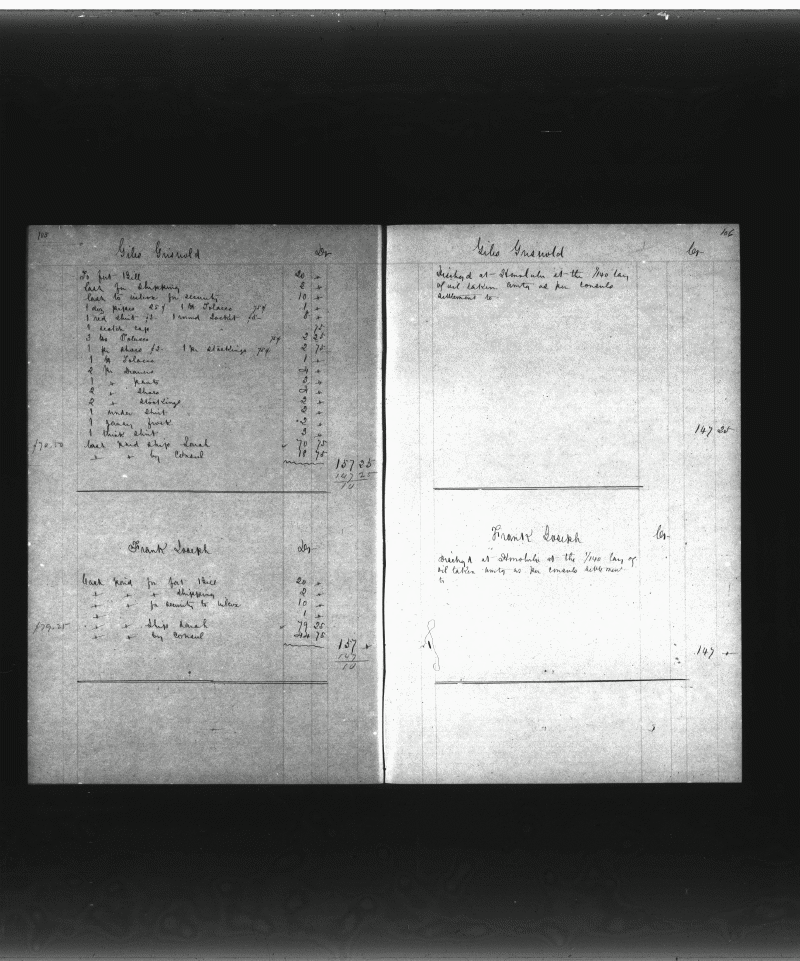 108
Giles Griswold Dr
To fort Bill 20 "
Cash for Shipping 2 "
Cash to for security 10 "
1 doz pipes 25¢ 1 lb Tobacco 75¢ 1 "
1 red Shirt $3 1 round Jacket $5 8 "
1 scotch cap 75
3 lbs Tobacco 75¢ 2 25
1 pr Shoes $2 1 pr Stockings 75¢ 2 75
1 lb Tobacco 1 "
2 pr Drawers 4 "
1 " pants 3 "
2 " Shoes 4 "
2 " Stockings 2 "
1 under Shirt 2 "
1 fancy frock 2 "
1 thick Shirt 3 "
$70.50 Cash paid Ships 70 75
" " by Consul 18 75
157 25
147 25
10
Frank Joseph Dr
Cash paid for fort Bill 20 "
" " " Shipping 2 "
" " for security to 10 "
" 1 "
$79.25 " " Ships 79 25
" " by Consul 44 75
157 "
147
10
106
Giles Griswold Cr
Dischgd at Honolulu at the 1/140 lay
of oil taken as per consuls
settlement to
147 25
Frank Joseph Cr
Dischgd at Honolulu at the 1/140 lay of
oil taken as per consuls settlement
to
147 "